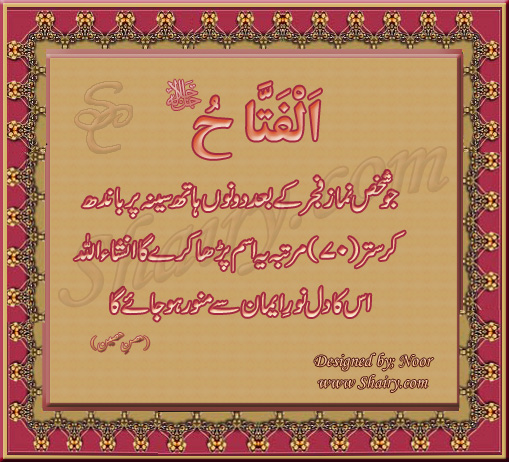 اَلْفَتَّاحُ جل جلالہ
جو شخص نماز فجر کے بعد دونوں ہاتھ سینہ پر باندھ
کر ستر (۷۰) مرتبہ یہ اسم پڑھا کرے گا انشاء اللہ
اس کا دل نورِ ایمان سے منور ہو جائے گا
(حصن حصین)
Designed by; Noor
www Shairy.com
Shairy.com